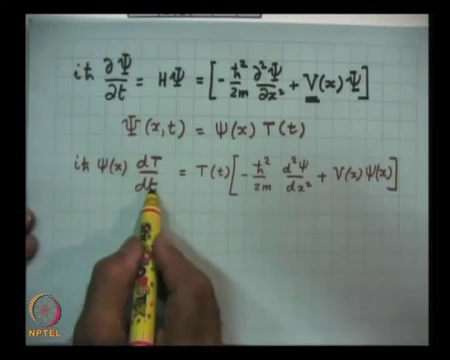 iħ ∂Ψ/∂t = HΨ = [-ħ²/2m ∂²Ψ/∂x² + V(x)Ψ]
Ψ(x,t) = ψ(x) T(t)
iħ ψ(x) dT/dt = T(t)[-ħ²/2m d²ψ/dx² + V(x)ψ(x)]
NPTEL